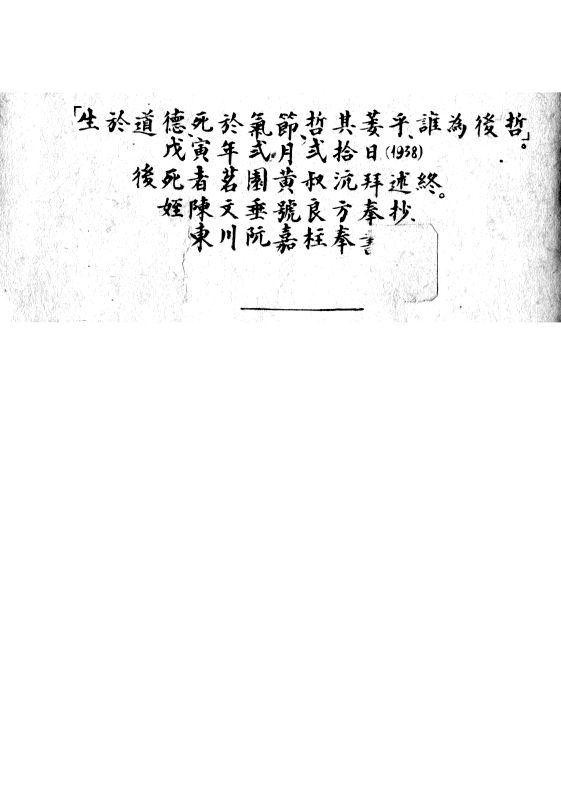 「生於道德、死於氣節、哲其萎乎、誰為後哲」。
戊寅年弍月弍拾日(1938)
後死者茗園黃叔沆拜述終。
姪陳文垂號良方奉抄.
東川阮嘉柱奉書